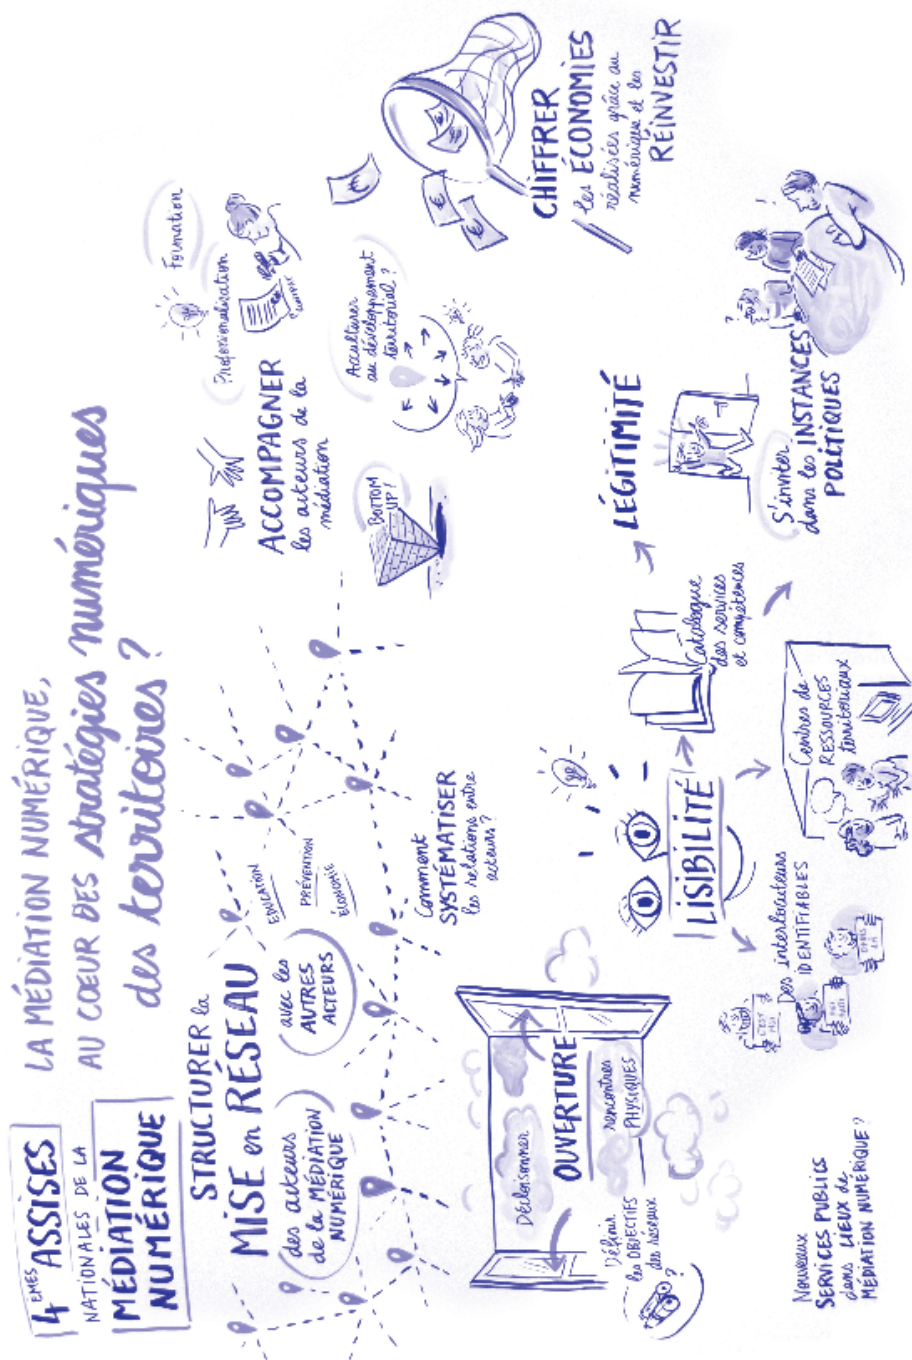 4EMES ASSISES
NATIONALES DE LA
MÉDIATION
NUMÉRIQUE
LA MÉDIATION NUMÉRIQUE,
AU CŒUR DES stratégies numériques
des territoires ?
STRUCTURER la
MISE en RÉSEAU
des acteurs
de la MÉDIATION
NUMÉRIQUE
avec les
AUTRES
ACTEURS
EDUCATION
PRÉVENTION
ÉCONOMIE
Comment
SYSTÉMATISER
les relations entre
acteurs ?
ACCOMPAGNER
les acteurs de la
médiation
Professionnalisation
Formation
BOTTOM
UP !
Acculturer
au développement
territorial ?
CHIFFRER
les ÉCONOMIES
réalisées grâce au
numérique et les
RÉINVESTIR
Décloisonner
OUVERTURE
rencontres
PHYSIQUES
Définir
les OBJECTIFS
des réseaux
?
LISIBILITÉ
Des interlocuteurs
IDENTIFIABLES
C'EST
MOI
Centres de
RESSOURCES
territoriaux
Catalogue
des services
et compétences
LÉGITIMITÉ
S'inviter
dans les INSTANCES
POLITIQUES
Nouveaux
SERVICES PUBLICS
dans LIEUX de
MÉDIATION NUMÉRIQUE ?